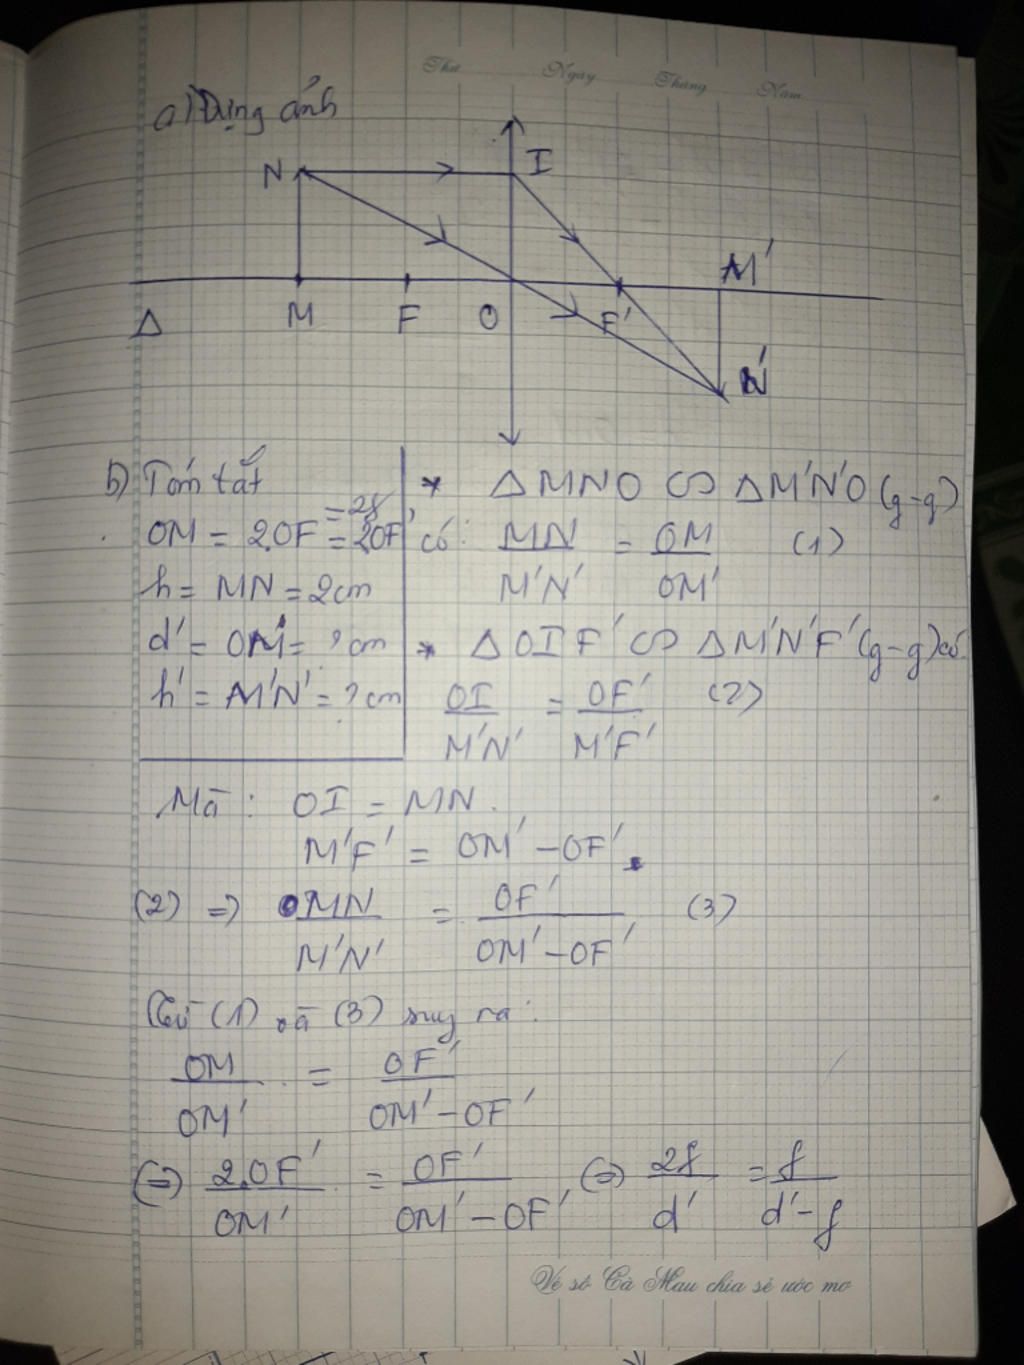 Thứ Ngày Tháng Năm
a) Dựng ảnh
N I
M'
Δ M F O F'
N'
b) Tóm tắt
OM = 2.OF = 2OF' = 2f
h = MN = 2cm
d' = OM' = ? cm
h' = M'N' = ? cm
* ΔMNO ∽ ΔM'N'O (g-g)
có: MN/M'N' = OM/OM' (1)
* ΔOIF' ∽ ΔM'N'F' (g-g) có
OI/M'N' = OF'/M'F' (2)
Mà: OI = MN.
M'F' = OM' - OF'.
(2) => MN/M'N' = OF'/(OM' - OF') (3)
Từ (1) và (3) suy ra:
OM/OM' = OF'/(OM' - OF')
(=) 2.OF'/OM' = OF'/(OM' - OF') (=) 2f/d' = f/(d' - f)
Vé số Cà Mau chia sẻ ước mơ